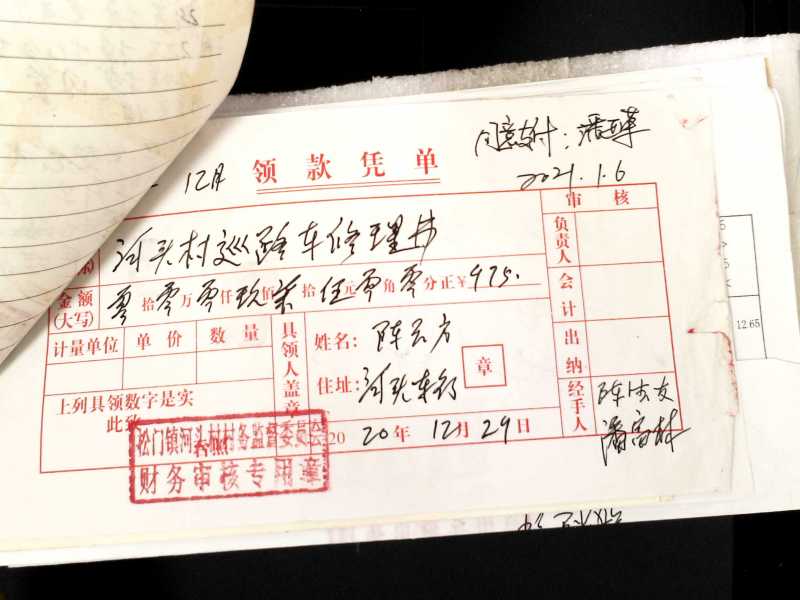 同意支付：潘
12月 领款凭单
2021.1.6
河头村巡路车修理
金额(大写) 零拾零万零仟玖佰柒拾伍元零角零分正￥975.
计量单位 单价 数量
具领人盖章
姓名：陈云方
住址：河头东
章
上列具领数字是实
此致
2020年12月29日
审核
负责人
会计
出纳
经手人
陈 友
潘富林
松门镇河头村村务监督委员会
财务审核专用章
12.65